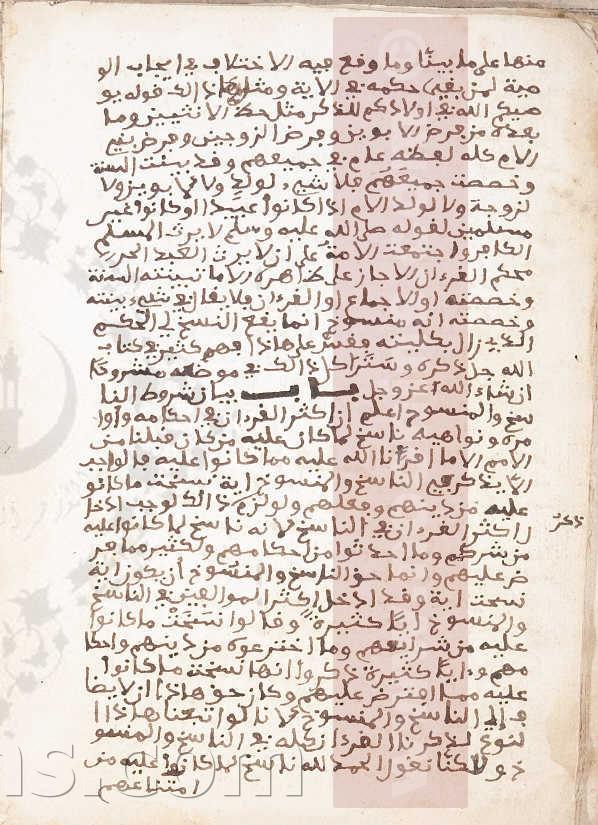 منها على ما بينا وما وقع فيه الاختلاف في ايجاب الو
صية لمن بقي حكمه في الاية ومثل هذا ذلك قوله يو
صيكم الله في اولادكم للذكر مثل حظ الانثيين وما
بعده من فرض الابوين وفرض الزوجين وفرض بني
الام كله لفظه عام في جميعهم وقد بينت السنة
وخصصت جميعهم فلا شيء لولد ولا لابوين ولا
لزوجة ولا لولد الام اذا كانوا عبيدا او كانوا غير
مسلمين لقوله صلى الله عليه وسلم لا يرث المسلم
الكافر واجتمعت الامة على ان لا يرث العبد الحر
محكم القرءان الاجاز على ظاهره الا ما تبينته السنة
وخصصته او الاجماع او القرءان فلا يقال في شيء بينته
وخصصته انه منسوخ انما يقع النسخ في الحكم
الذي زال بكليته وقس على هذا فهم كثير في كتاب
الله جل ذكره وسترا كل ذلك في موضعه مشروحا
ان شاء الله عز وجل باب بيان شروط النا
سخ والمنسوخ اعلم ان اكثر القرءان في احكامه واوا
مره ونواهيه ناسخ لما كان عليه من كان قبلنا من
الامم الا ما اقرانا الله عليه مما كانوا عليه فالواجب
الا يذكر في الناسخ والمنسوخ اية نسخت ما كانو
عليه من دينهم وفعلهم ولو لزم ذلك لوجب ادخا
ل اكثر القرءان في الناسخ لانه ناسخ لما كانوا عليه
ذكر
من شركهم وما احدثوا من احكامهم ولكثير مما فر
ض عليهم وانما حق الناسخ والمنسوخ أن يكون اية
نسخت اية وقد ادخل اكثر المولفين في الناسخ
والمنسوخ ايا كثيرة وقالوا نسخت ما كانوا
عليه من شرايعهم وما اخترعوه من دينهم واحكا
مهم وايا كثيرة ذكروا انها نسخت ما كانوا
عليه مما افترض عليهم وكان حق هاذا ان لا يضا
ف الى الناسخ والمنسوخ لانا لو اتبعنا هاذا ا
لنوع لذكرنا القرءان كله في الناسخ والمنسو
خ ولكنا نقول الحمد لله ناسخ لما كانوا عليه من
امتناعهم